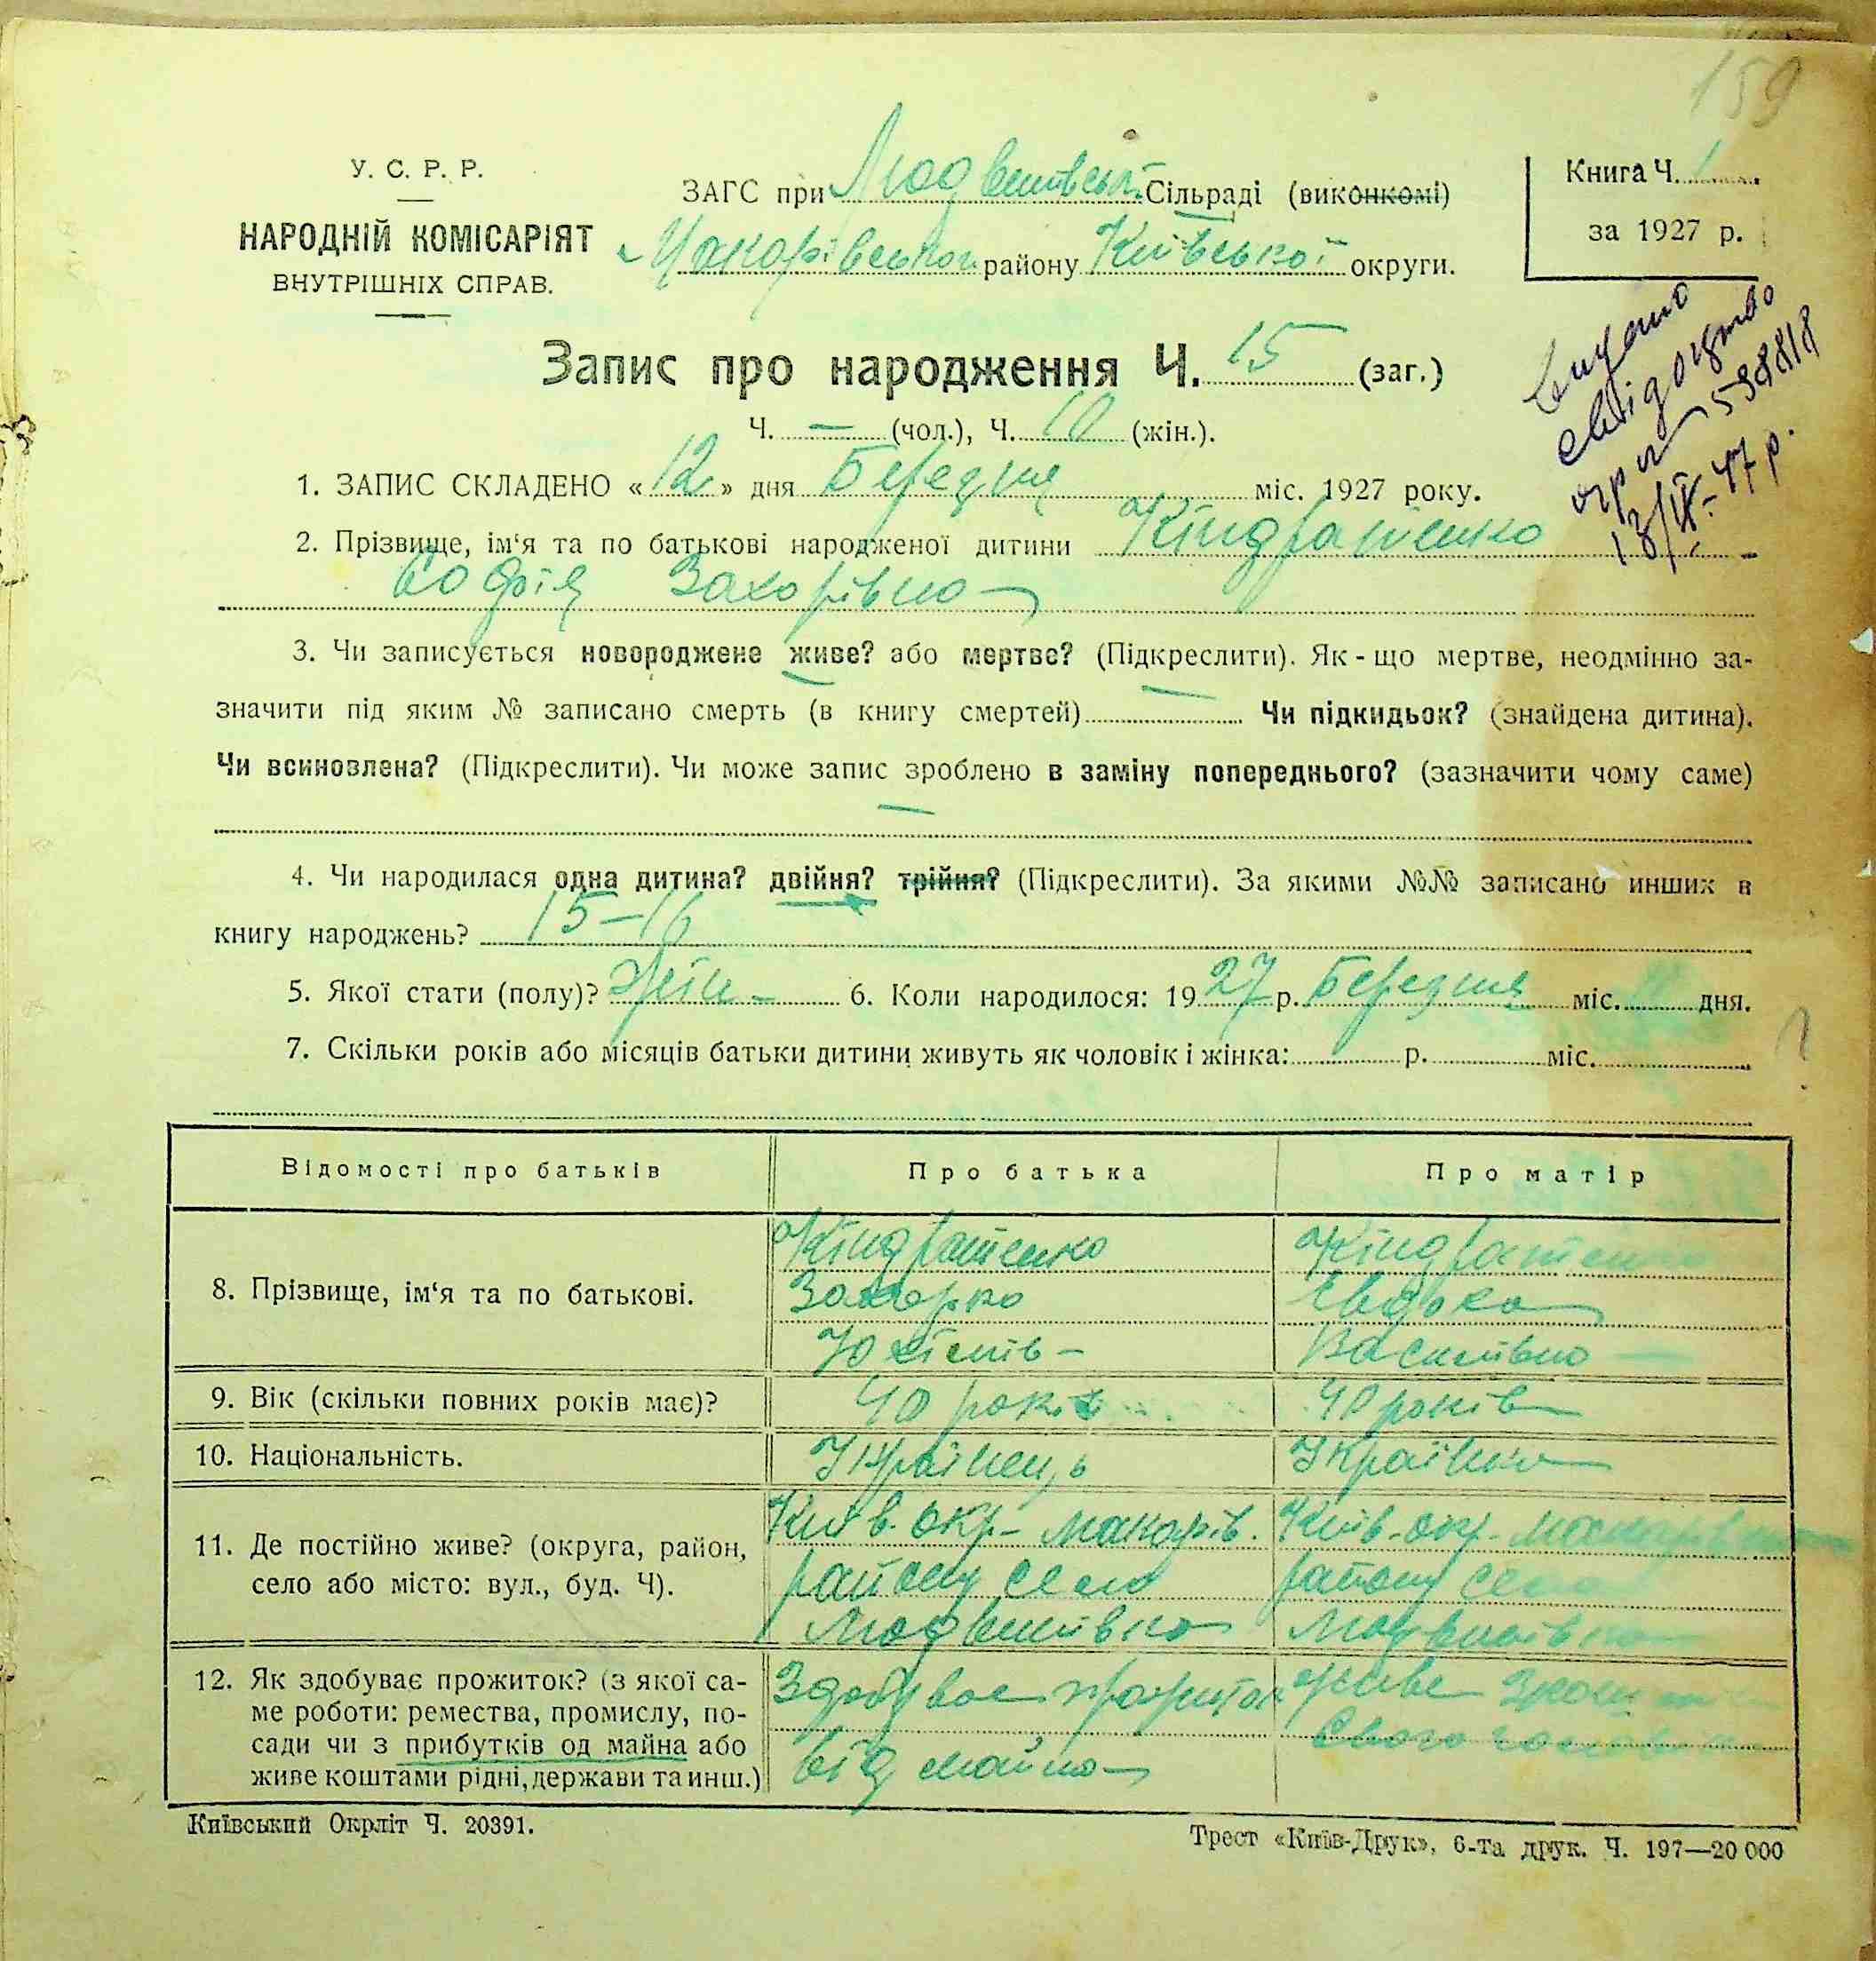 159
У. С. Р. Р.
НАРОДНІЙ КОМІСАРІЯТ
ВНУТРІШНІХ СПРАВ.
ЗАГС при Людвинівській Сільраді (виконкомі)
Макарівського району Київської округи.
Книга Ч. 1
за 1927 р.
Видано
свідоцтво
598818
13/IX-47 р.
Запис про народження Ч. 15 (заг.)
Ч. — (чол.), Ч. 10 (жін.).
1. ЗАПИС СКЛАДЕНО «12» дня Березня міс. 1927 року.
2. Прізвище, ім'я та по батькові народженої дитини Кіндратенко
Софія Захорівно
3. Чи записується новороджене живе? або мертве? (Підкреслити). Як-що мертве, неодмінно за-
значити під яким № записано смерть (в книгу смертей) — Чи підкидьок? (знайдена дитина).
Чи всиновлена? (Підкреслити). Чи може запис зроблено в заміну попереднього? (зазначити чому саме)
—
4. Чи народилася одна дитина? двійня? трійня? (Підкреслити). За якими №№ записано инших в
книгу народжень? 15-16
5. Якої стати (полу)? Жін- 6. Коли народилося: 1927 р. Березня міс. дня.
7. Скільки років або місяців батьки дитини живуть як чоловік і жінка: р. міс.
Відомості про батьків Про батька Про матір
8. Прізвище, ім'я та по батькові.
Кіндратенко
Захарко
Юхимів-
Кіндратенко
Євдока
Василівно
9. Вік (скільки повних років має)? 40 років 40 років
10. Національність. Українець Українка
11. Де постійно живе? (округа, район,
село або місто: вул., буд. Ч).
Київ. окр- Макарів.
району село
Людвинівка
Київ. окр.
району село
Людвинівка
12. Як здобуває прожиток? (з якої са-
ме роботи: ремества, промислу, по-
сади чи з прибутків од майна або
живе коштами рідні, держави та инш.)
Здобуває прожиток
від майна
живе
свого
Київський Окрліт Ч. 20391.
Трест «Київ-Друк», 6-та друк. Ч. 197—20 000